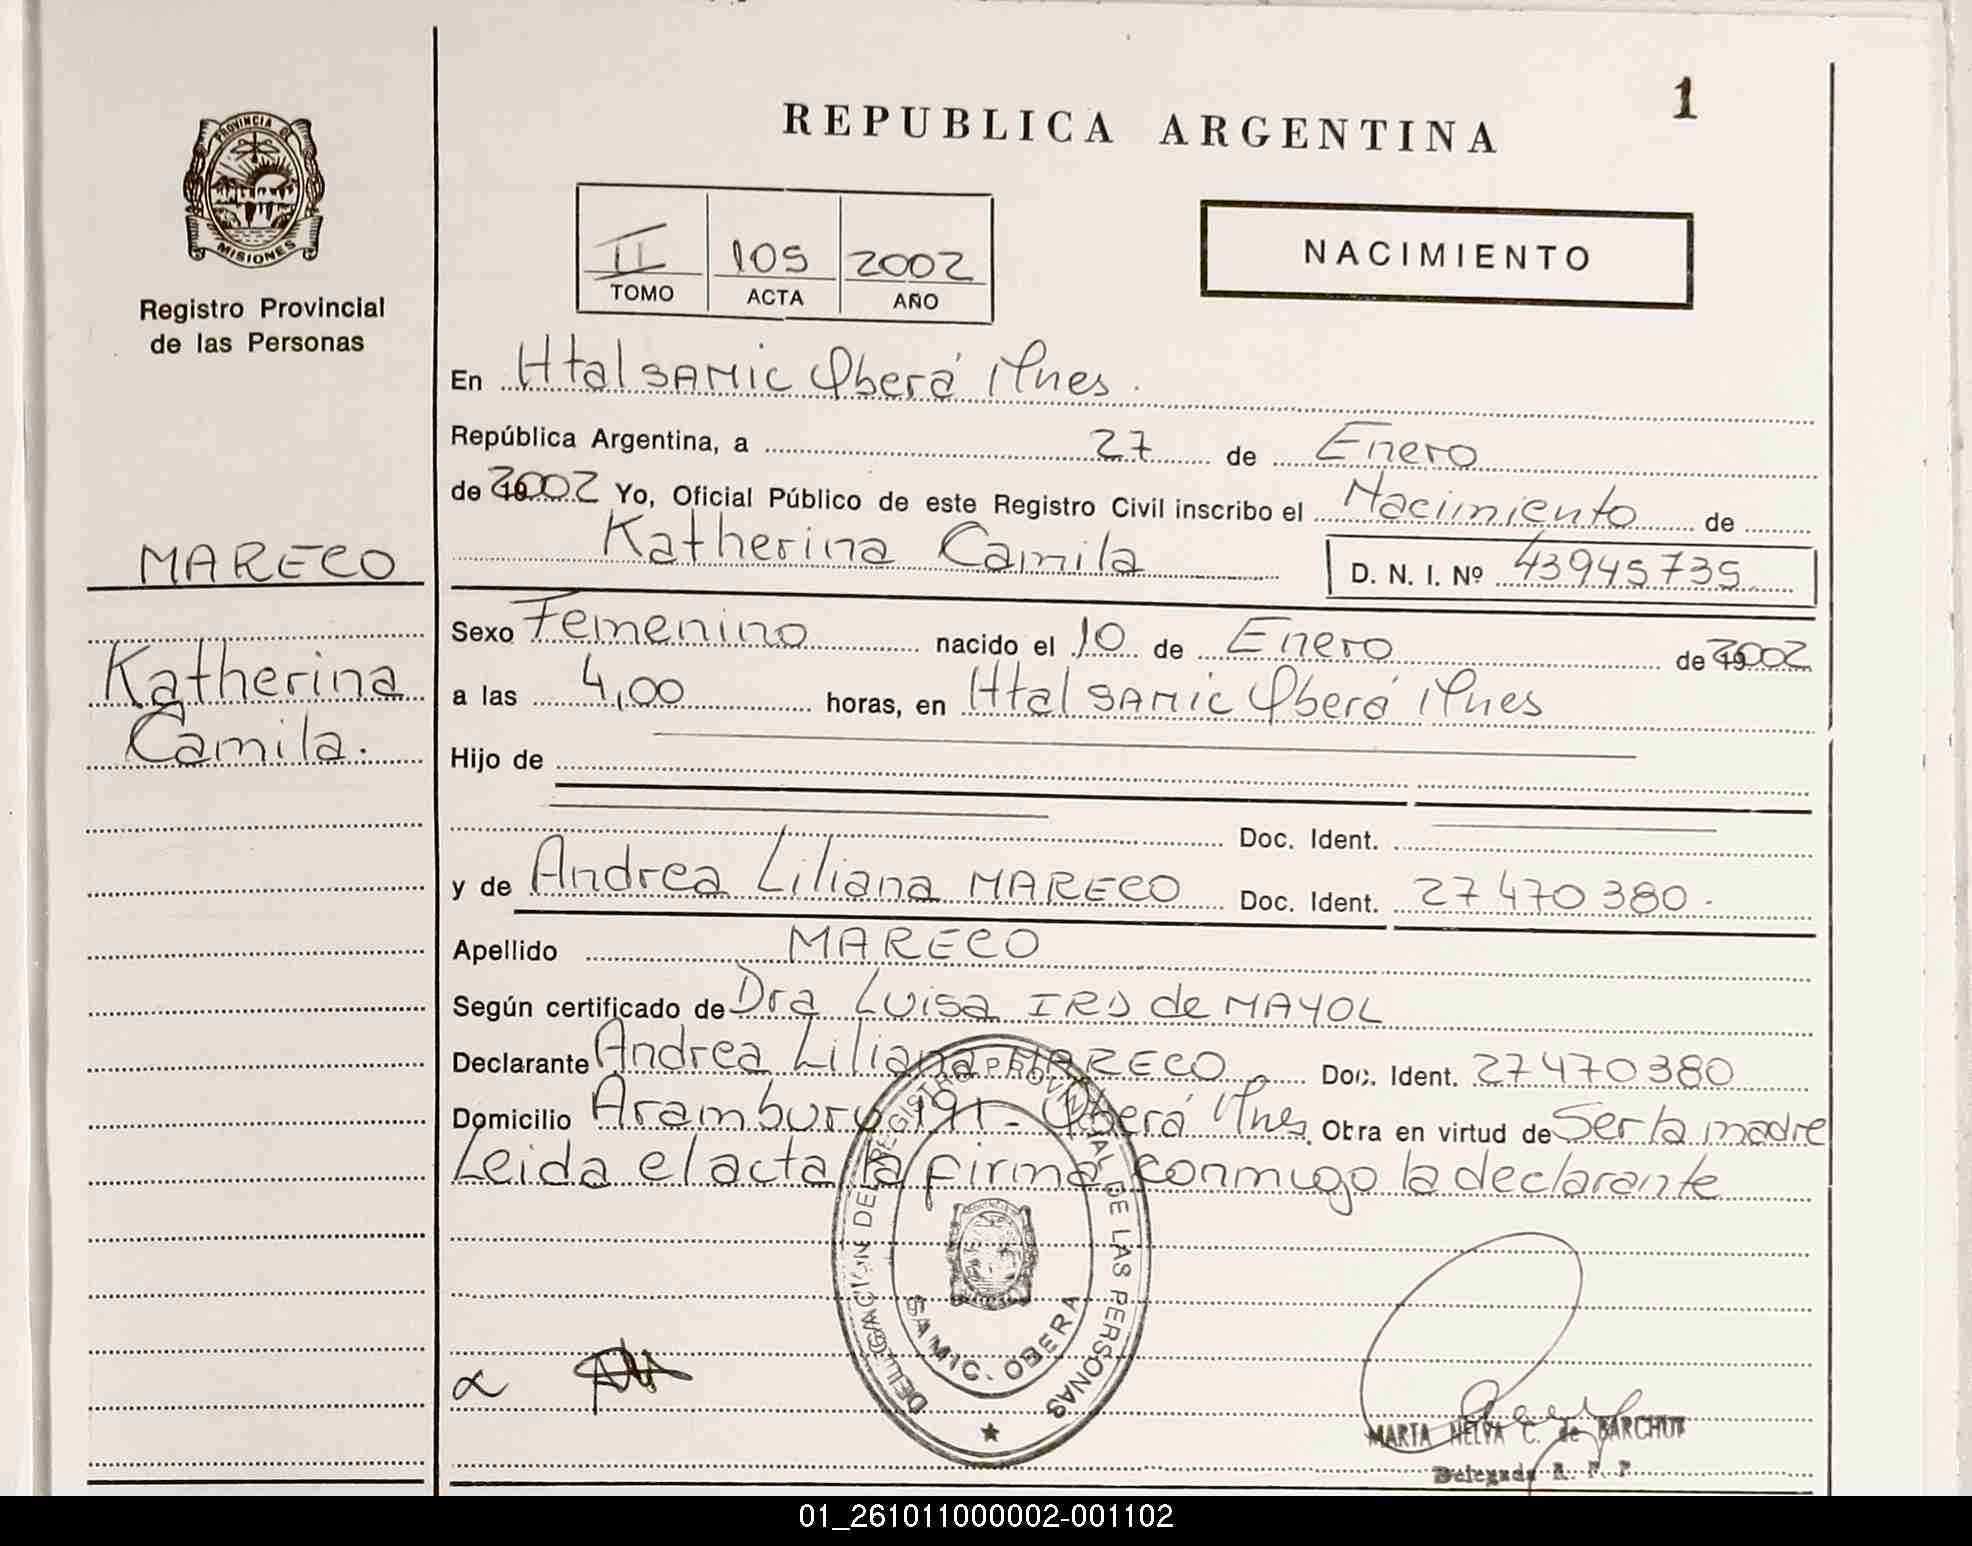 1
REPUBLICA ARGENTINA
PROVINCIA DE
MISIONES
Registro Provincial
de las Personas
II 105 2002
TOMO ACTA AÑO
NACIMIENTO
En Htal SAMIC Oberá Mnes.
República Argentina, a 27 de Enero
de 2002 Yo, Oficial Público de este Registro Civil inscribo el Nacimiento de
Katherina Camila D. N. I. Nº 43945735
MARECO
Katherina
Camila.
Sexo Femenino nacido el 10 de Enero de 2002
a las 4,00 horas, en Htal SAMIC Oberá Mnes
Hijo de
Doc. Ident.
y de Andrea Liliana MARECO Doc. Ident. 27470380.
Apellido MARECO
Según certificado de Dra Luisa de MAYOL
Declarante Andrea Liliana MARECO Doc. Ident. 27470380
Domicilio Aramburu 191- Oberá Mnes. Obra en virtud de Ser la madre
Leida el acta, la firma conmigo la declarante
DELEGACION DEL REGISTRO PROVINCIAL DE LAS PERSONAS
SAMIC. OBERA
MARTA NELVA C. de BARCHUK
Delegada R. P. P.
01_261011000002-001102